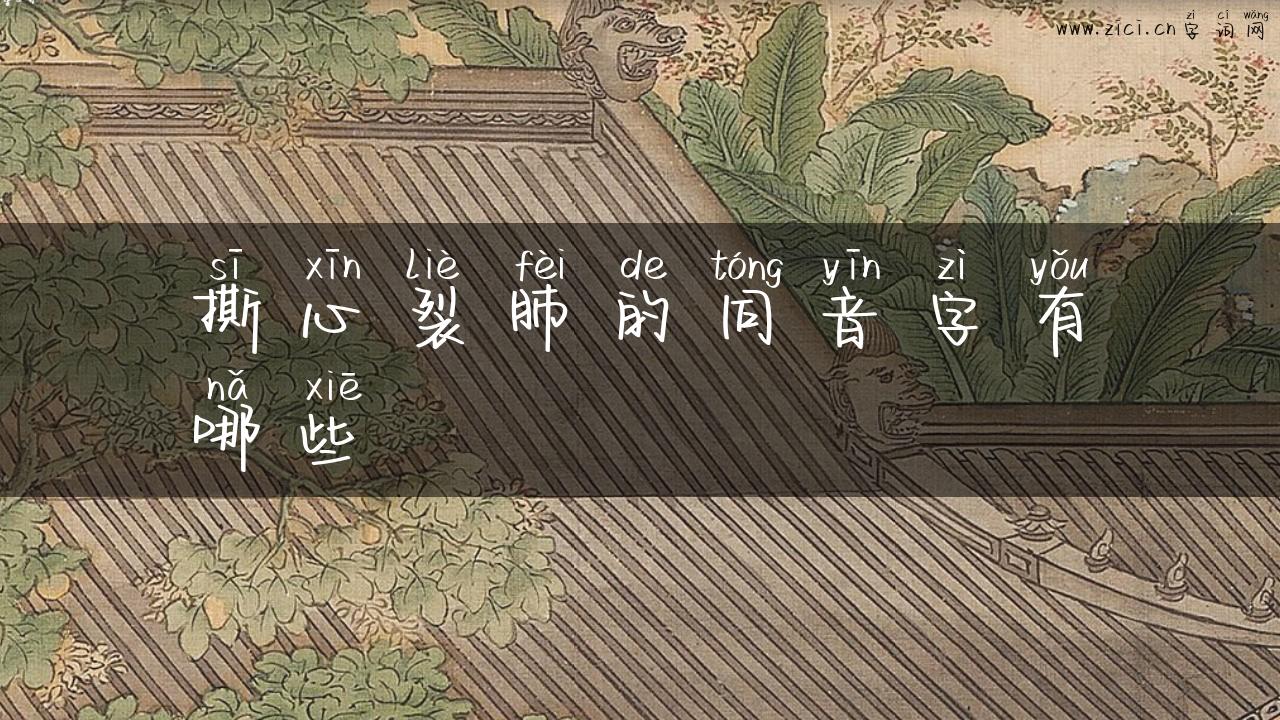 zì cí wǎng
www.zici.cn 字词网
sī xīn liè fèi de tóng yīn zì yǒu
撕心裂肺的同音字有
nǎ xiē
哪些